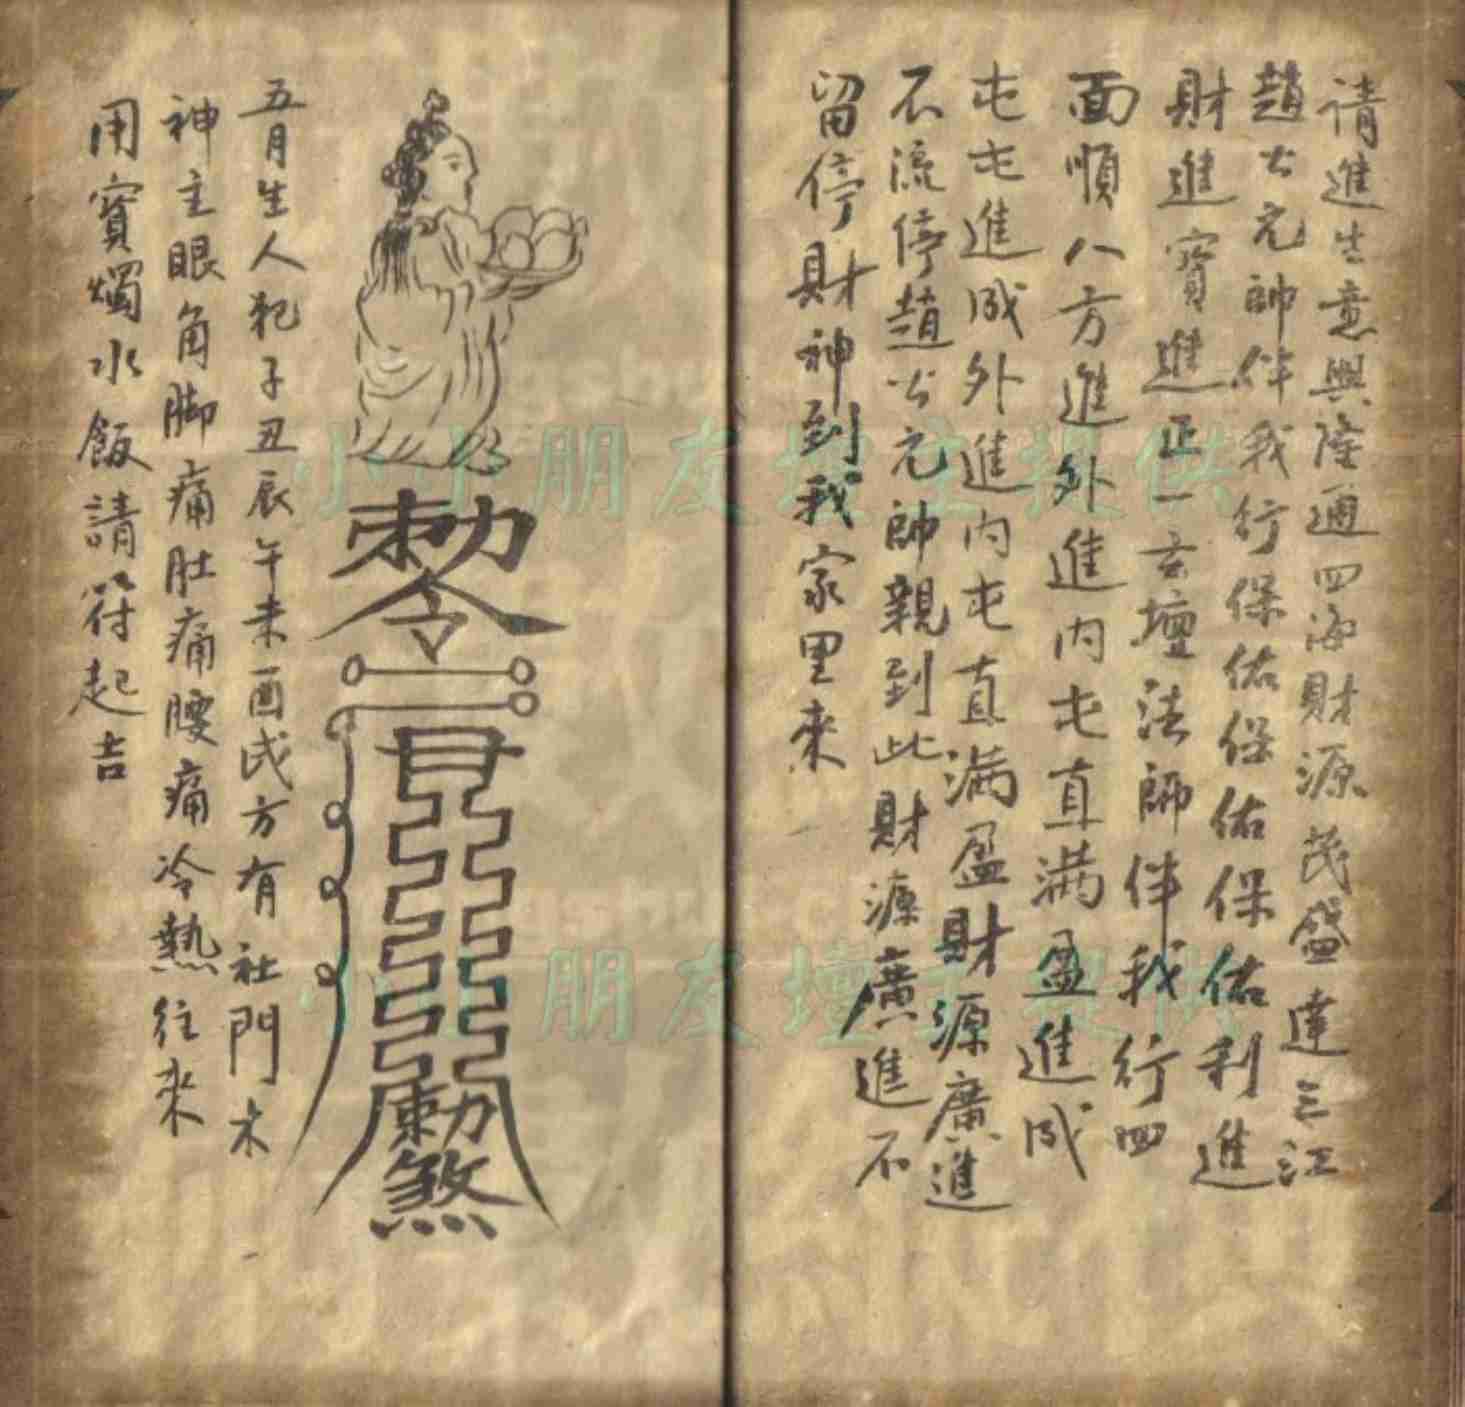 请進生意興隆通四海財源茂盛達三江
趙公元帥伴我行保佑保佑保佑利進
財進寶進正一玄壇法師伴我行四
面順八方進外進内屯直满盈進成
屯屯進成外進内屯直满盈財源廣進
不流停趙公元帥親到此財源廣進不
留停財神到我家里來
五月生人犯子丑辰午未酉戌方有社門木
神主眼角脚痛肚痛腰痛冷熱往来
用寳燭水飯請符起吉
勅令
勅煞
小小朋友壇主提供
小小朋友壇主提供